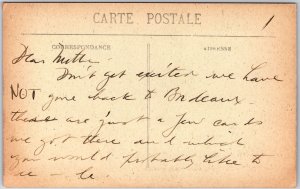 CARTE POSTALE
1
CORRESPONDANCE
ADRESSE
Dear Mother -
Don't get excited we have
NOT gone back to Bordeaux.
these are just a few cards
we got there and which
you would probably like to
see -